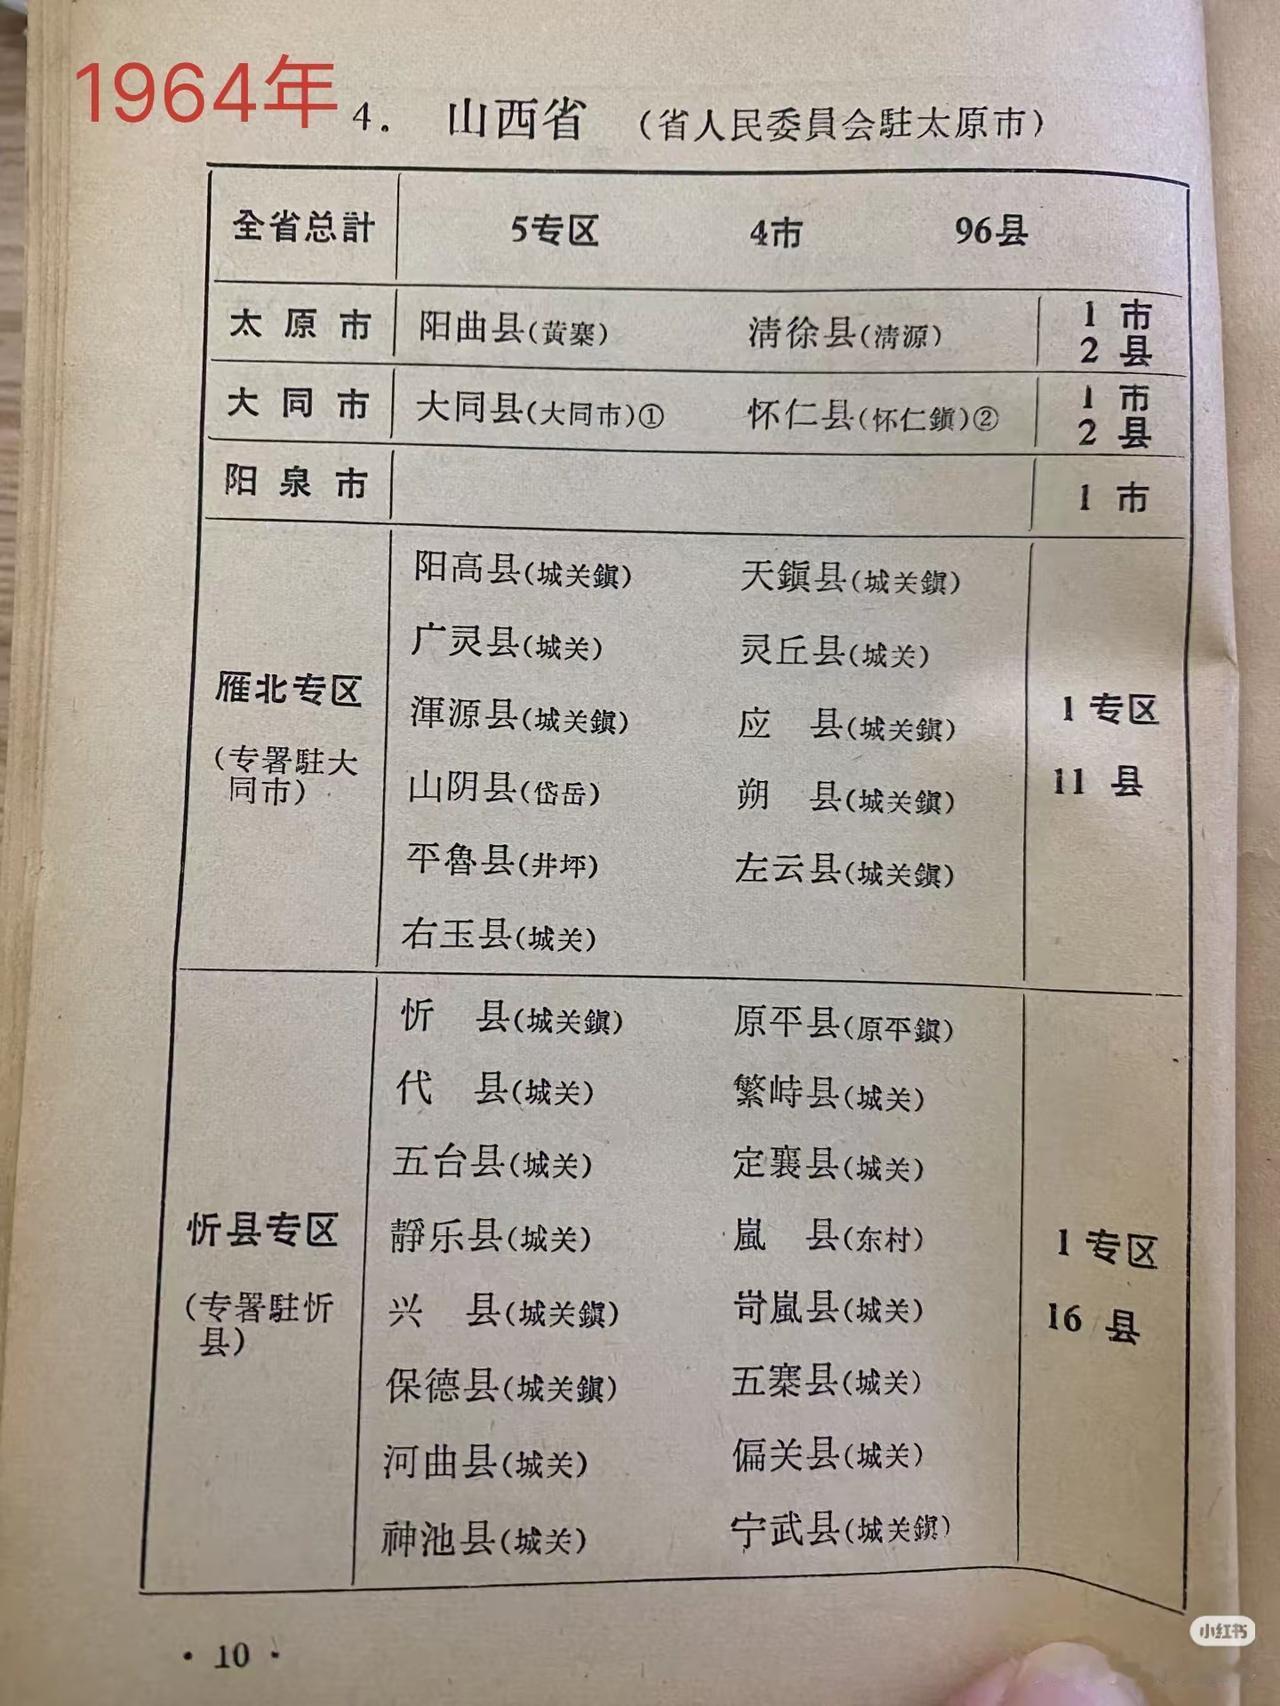 1964年
4. 山西省 （省人民委員会駐太原市）
全省总計 5专区 4市 96县
太原市 阳曲县(黃寨) 淸徐县(淸源) 1市
2县
大同市 大同县(大同市)① 怀仁县(怀仁鎭)② 1市
2县
阳泉市 1市
雁北专区
(专署駐大
同市)
阳高县(城关鎭) 天鎭县(城关鎭)
广灵县(城关) 灵丘县(城关)
渾源县(城关鎭) 应 县(城关鎭)
山阴县(岱岳) 朔 县(城关鎭)
平魯县(井坪) 左云县(城关鎭)
右玉县(城关)
1专区
11县
忻县专区
(专署駐忻
县)
忻 县(城关鎭) 原平县(原平鎭)
代 县(城关) 繁峙县(城关)
五台县(城关) 定襄县(城关)
靜乐县(城关) 嵐 县(东村)
兴 县(城关鎭) 岢嵐县(城关)
保德县(城关鎭) 五寨县(城关)
河曲县(城关) 偏关县(城关)
神池县(城关) 宁武县(城关鎭)
1专区
16县
·10·
小红书